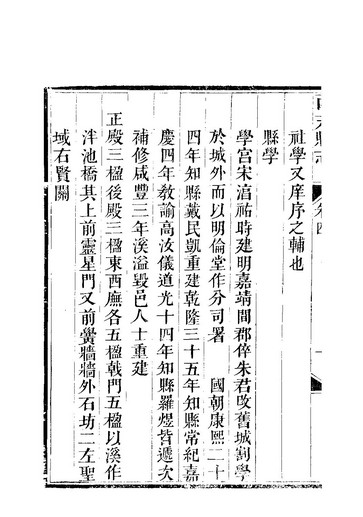 社學又庠序之輔也
縣學
學宮宋淯祐時建明嘉靖間郡倅朱君改舊城割學
於城外而以明倫堂作分司署　國朝康熙二十
四年知縣戴民凱重建乾隆三十五年知縣常紀嘉
慶四年教諭高汝儀道光十四年知縣羅煜皆遞次
補修咸豐三年溪溢毀邑人士重建
正殿三楹後殿三楹東西廡各五楹戟門五楹以溪作
泮池橋其上前靈星門又前黌牆牆外石坊二左聖
域右賢關